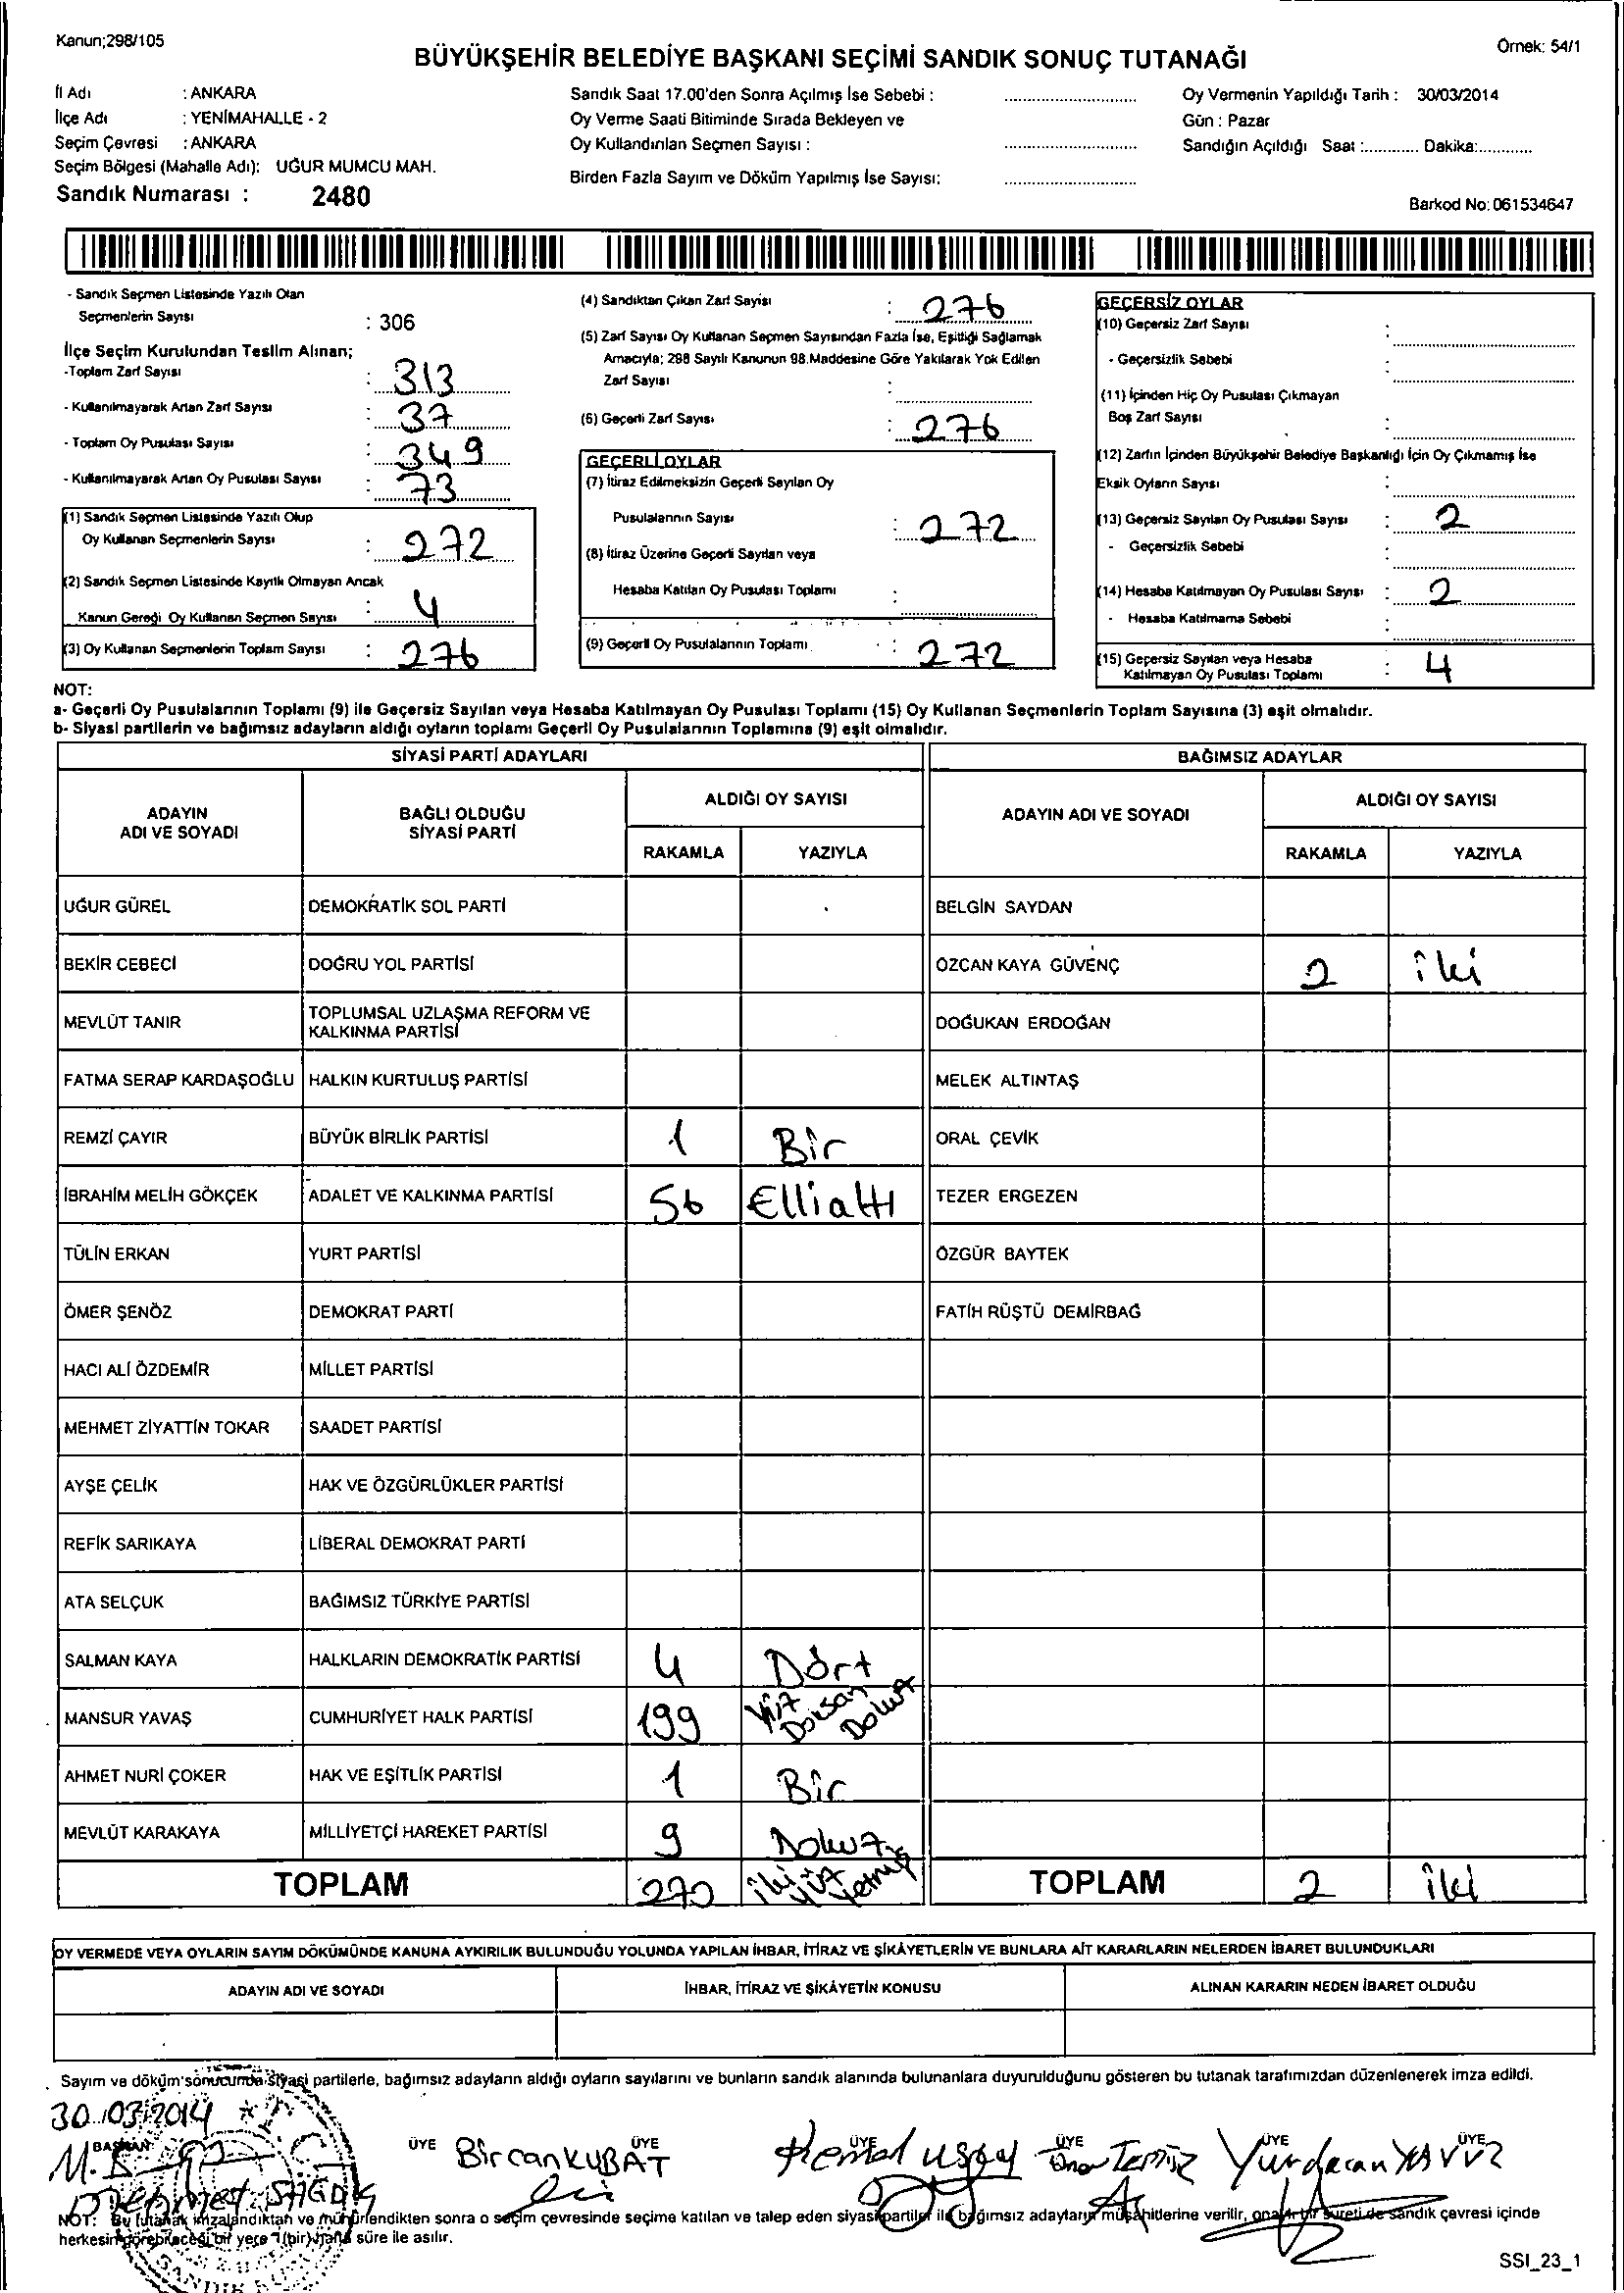 Kanun;298/105
Örnek: 54/1
BÜYÜKŞEHİR BELEDİYE BAŞKANI SEÇİMİ SANDIK SONUÇ TUTANAĞI
İl Adı : ANKARA
İlçe Adı : YENİMAHALLE - 2
Seçim Çevresi : ANKARA
Seçim Bölgesi (Mahalle Adı): UĞUR MUMCU MAH.
Sandık Numarası : 2480
Sandık Saat 17.00'den Sonra Açılmış İse Sebebi :
Oy Verme Saati Bitiminde Sırada Bekleyen ve
Oy Kullandırılan Seçmen Sayısı :
Birden Fazla Sayım ve Döküm Yapılmış İse Sayısı:
Oy Vermenin Yapıldığı Tarih : 30/03/2014
Gün : Pazar
Sandığın Açıldığı Saat :............ Dakika:............
Barkod No: 061534647
- Sandık Seçmen Listesinde Yazılı Olan
Seçmenlerin Sayısı : 306
İlçe Seçim Kurulundan Teslim Alınan;
-Toplam Zarf Sayısı : 313
- Kullanılmayarak Artan Zarf Sayısı : 37
- Toplam Oy Pusulası Sayısı : 349
- Kullanılmayarak Artan Oy Pusulası Sayısı : 73
(1) Sandık Seçmen Listesinde Yazılı Olup
Oy Kullanan Seçmenlerin Sayısı : 272
(2) Sandık Seçmen Listesinde Kayıtlı Olmayan Ancak
Kanun Gereği Oy Kullanan Seçmen Sayısı : 4
(3) Oy Kullanan Seçmenlerin Toplam Sayısı : 276
(4) Sandıktan Çıkan Zarf Sayısı : 276
(5) Zarf Sayısı Oy Kullanan Seçmen Sayısından Fazla İse, Eşitliği Sağlamak
Amacıyla; 298 Sayılı Kanunun 98.Maddesine Göre Yakılarak Yok Edilen
Zarf Sayısı :
(6) Geçerli Zarf Sayısı : 276
GEÇERLİ OYLAR
(7) İtiraz Edilmeksizin Geçerli Sayılan Oy
Pusulalarının Sayısı : 272
(8) İtiraz Üzerine Geçerli Sayılan veya
Hesaba Katılan Oy Pusulası Toplamı :
(9) Geçerli Oy Pusulalarının Toplamı : 272
GEÇERSİZ OYLAR
(10) Geçersiz Zarf Sayısı :
- Geçersizlik Sebebi :
(11) İçinden Hiç Oy Pusulası Çıkmayan
Boş Zarf Sayısı :
(12) Zarfın İçinden Büyükşehir Belediye Başkanlığı İçin Oy Çıkmamış İse
Eksik Oyların Sayısı :
(13) Geçersiz Sayılan Oy Pusulası Sayısı : 2
- Geçersizlik Sebebi :
(14) Hesaba Katılmayan Oy Pusulası Sayısı : 2
- Hesaba Katılmama Sebebi :
(15) Geçersiz Sayılan veya Hesaba
Katılmayan Oy Pusulası Toplamı : 4
NOT:
a- Geçerli Oy Pusulalarının Toplamı (9) ile Geçersiz Sayılan veya Hesaba Katılmayan Oy Pusulası Toplamı (15) Oy Kullanan Seçmenlerin Toplam Sayısına (3) eşit olmalıdır.
b- Siyasi partilerin ve bağımsız adayların aldığı oyların toplamı Geçerli Oy Pusulalarının Toplamına (9) eşit olmalıdır.
SİYASİ PARTİ ADAYLARI
BAĞIMSIZ ADAYLAR
ADAYIN ADI VE SOYADI
BAĞLI OLDUĞU SİYASİ PARTİ
ALDIĞI OY SAYISI
RAKAMLA YAZIYLA
ADAYIN ADI VE SOYADI
ALDIĞI OY SAYISI
RAKAMLA YAZIYLA
UĞUR GÜREL DEMOKRATİK SOL PARTİ BELGİN SAYDAN
BEKİR CEBECİ DOĞRU YOL PARTİSİ ÖZCAN KAYA GÜVENÇ 2 iki
MEVLÜT TANIR TOPLUMSAL UZLAŞMA REFORM VE KALKINMA PARTİSİ DOĞUKAN ERDOĞAN
FATMA SERAP KARDAŞOĞLU HALKIN KURTULUŞ PARTİSİ MELEK ALTINTAŞ
REMZİ ÇAYIR BÜYÜK BİRLİK PARTİSİ 1 Bir ORAL ÇEVİK
İBRAHİM MELİH GÖKÇEK ADALET VE KALKINMA PARTİSİ 56 Elliatı TEZER ERGEZEN
TÜLİN ERKAN YURT PARTİSİ ÖZGÜR BAYTEK
ÖMER ŞENÖZ DEMOKRAT PARTİ FATİH RÜŞTÜ DEMİRBAĞ
HACI ALİ ÖZDEMİR MİLLET PARTİSİ
MEHMET ZİYATTİN TOKAR SAADET PARTİSİ
AYŞE ÇELİK HAK VE ÖZGÜRLÜKLER PARTİSİ
REFİK SARIKAYA LİBERAL DEMOKRAT PARTİ
ATA SELÇUK BAĞIMSIZ TÜRKİYE PARTİSİ
SALMAN KAYA HALKLARIN DEMOKRATİK PARTİSİ 4 Dört
MANSUR YAVAŞ CUMHURİYET HALK PARTİSİ 199 Yüz Doksan Dokuz
AHMET NURİ ÇOKER HAK VE EŞİTLİK PARTİSİ 1 Bir
MEVLÜT KARAKAYA MİLLİYETÇİ HAREKET PARTİSİ 9 Dokuz
TOPLAM 270 iki yüz yetmiş TOPLAM 2 iki
OY VERMEDE VEYA OYLARIN SAYIM DÖKÜMÜNDE KANUNA AYKIRILIK BULUNDUĞU YOLUNDA YAPILAN İHBAR, İTİRAZ VE ŞİKÂYETLERİN VE BUNLARA AİT KARARLARIN NELERDEN İBARET BULUNDUKLARI
ADAYIN ADI VE SOYADI İHBAR, İTİRAZ VE ŞİKÂYETİN KONUSU ALINAN KARARIN NEDEN İBARET OLDUĞU
Sayım ve döküm sonucunda siyasi partilerle, bağımsız adayların aldığı oyların sayılarını ve bunların sandık alanında bulunanlara duyurulduğunu gösteren bu tutanak tarafımızdan düzenlenerek imza edildi.
30.03.2014
BAŞKAN ÜYE ÜYE ÜYE ÜYE ÜYE ÜYE
Bircan KUBAT Kemal Yurdacan YAVUZ
Mehmet
NOT: Bu tutanak imzalandıktan ve mühürlendikten sonra o seçim çevresinde seçime katılan ve talep eden siyasi partiler ile bağımsız adayların müşahitlerine verilir, onaylı bir sureti de sandık çevresi içinde
herkesin görebileceği bir yere 1 (bir) hafta süre ile asılır.
SSI_23_1